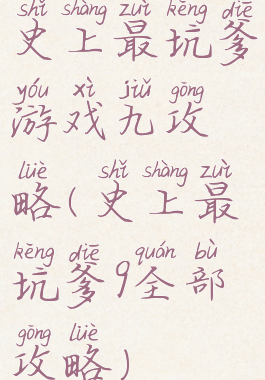 shǐ shàng zuì kēng diē
史上最坑爹
yóu xì jiǔ gōng
游戏九攻
lüè shǐ shàng zuì
略(史上最
kēng diē quán bù
坑爹9全部
gōng lüè
攻略)